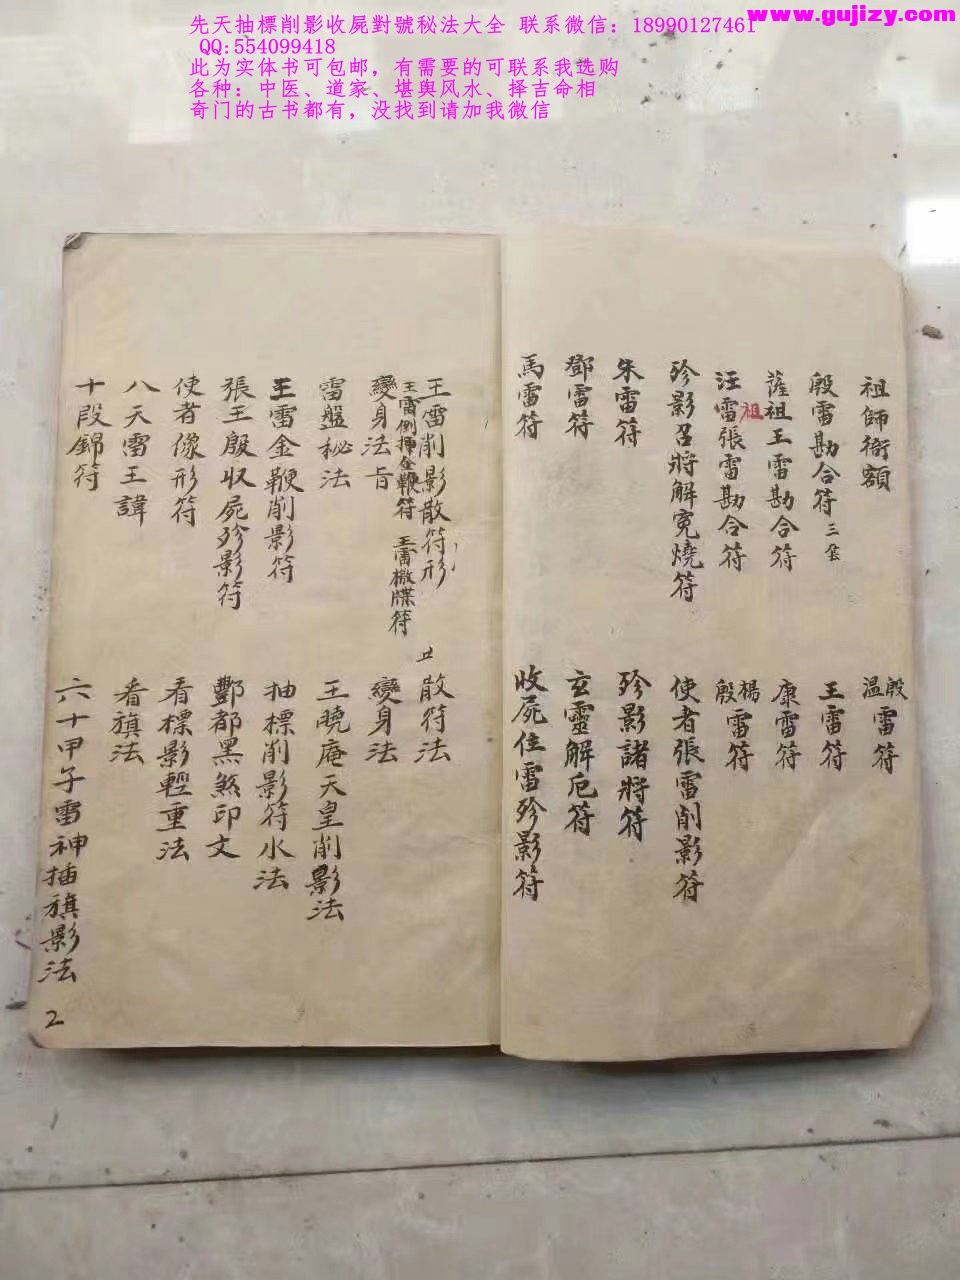 先天抽標削影收屍對號秘法大全 联系微信：18990127461
QQ:554099418
此为实体书可包邮，有需要的可联系我选购
各种：中医、道家、堪舆风水、择吉命相
奇门的古书都有，没找到请加我微信
www.gujizy.com
祖師衔額
殷雷勘合符 三
薩祖王雷勘合符
汪雷張雷勘合符
祖
殄影召將解冤燒符
朱雷符
鄧雷符
馬雷符
殷温雷符
王雷符
康雷符
楊殷雷符
使者張雷削影符
殄影諸將符
玄靈解厄符
收屍住雷殄影符
王雷削影散符形
王雷倒揮金鞭符 王雷檄牒符
變身法旨
雷盤秘法
王雷金鞭削影符
張王殷收屍殄影符
使者像形符
八天雷王諱
十段錦符
散符法
變身法
王曉庵天皇削影法
抽標削影符水法
酆都黑煞印文
看標影輕重法
看旗法
六十甲子雷神插旗影法
2